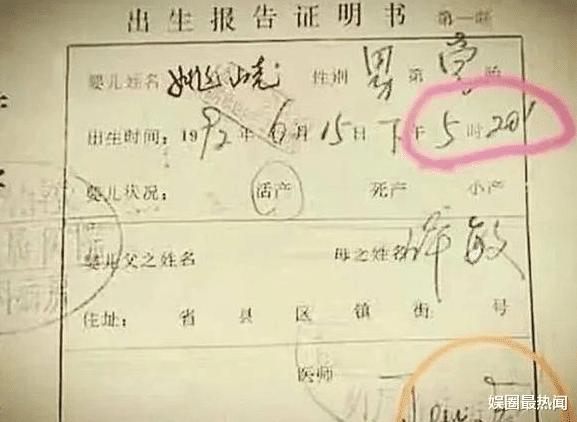 出生报告证明书 第一联
婴儿姓名 姚 性别 男 第 壹 胎
出生时间: 1992年6月15日下午5时20'
婴儿状况: 活产 死产 小产
婴儿父之姓名 母之姓名 许敏
住址: 省 县 区 镇 街 号
医师
娱圈最热闻